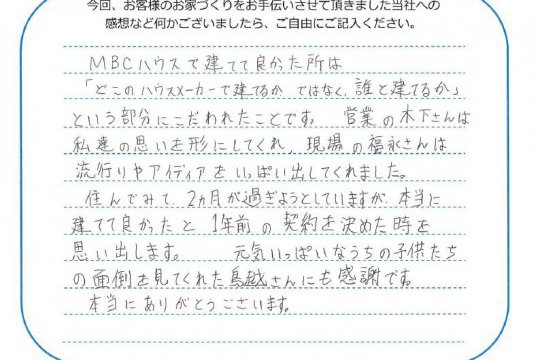 今回、お客様のお家づくりをお手伝いさせて頂きました当社への
感想など何かございましたら、ご自由にご記入ください。
MBCハウスで建てて良かった所は
「どこのハウスメーカーで建てるか ではなく、誰と建てるか」
という部分にこだわれたことです。 営業の木下さんは
私達の思いを形にしてくれ、現場の福永さんは
流行りやアイディアをいっぱい出してくれました。
住んでみて、2ヵ月が過ぎようとしていますが、本当に
建てて良かったと 1年前の契約を決めた時を
思い出します。 元気いっぱいなうちの子供たち
の面倒を見てくれた鳥越さんにも感謝です。
本当にありがとうございます。